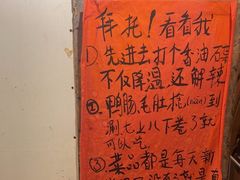 拜托！看看我
①先进去打个香油石蒜
不仅降温还解辣
②鸭肠、毛肚控(nán)到
涮七上八下卷了就
可以吃
③菜品都是每天新